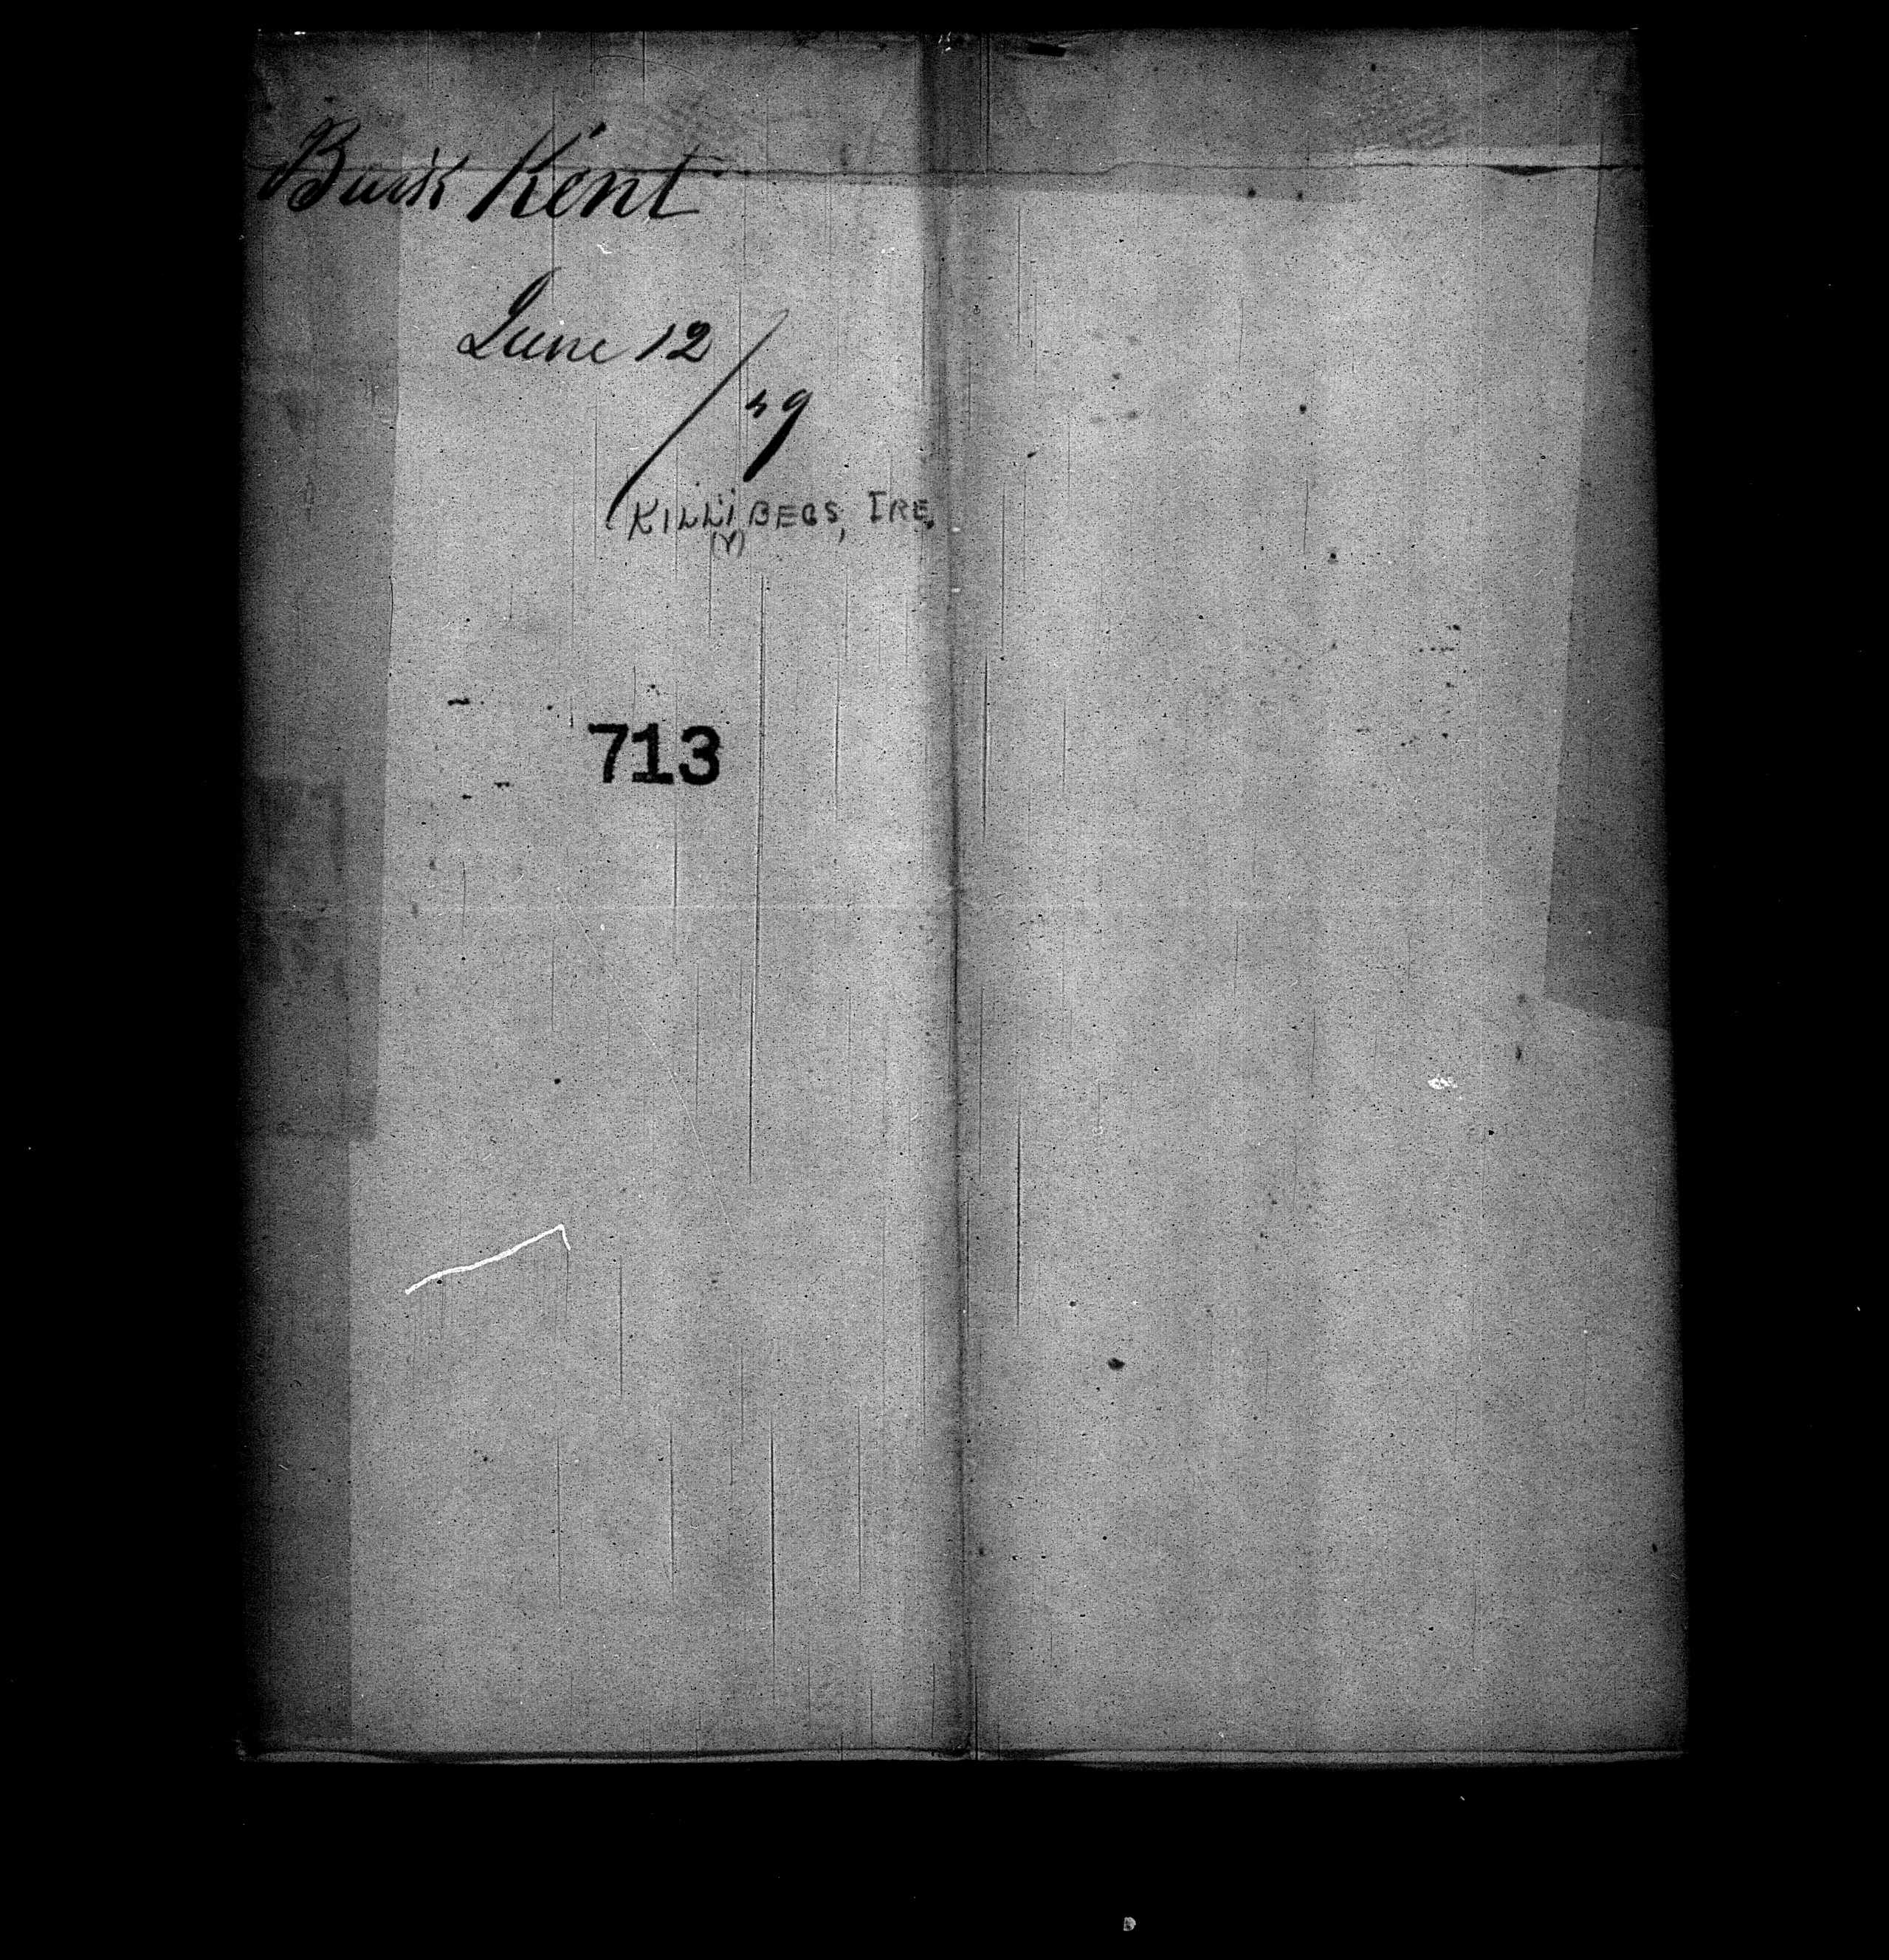 Bark Kent
June 12/49
KILLIBEGS, IRE.
(Y)
713